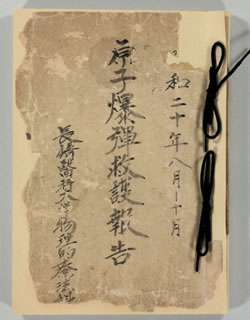 和二十年八月—十月
原子爆彈救護報告
長崎醫科大學物理的療法科